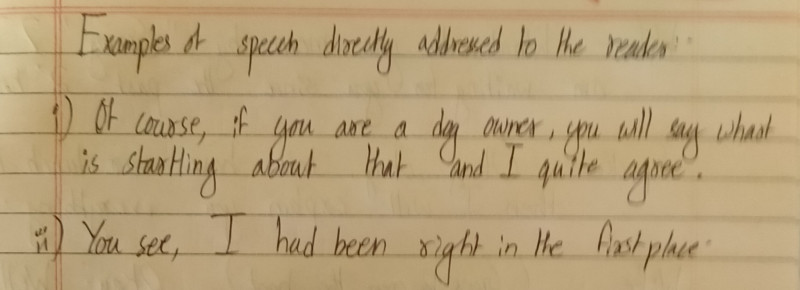 Examples of speech directly addressed to the reader:
i) Of course, if you are a dog owner, you will say what
is startling about that and I quite agree.
ii) You see, I had been right in the first place.